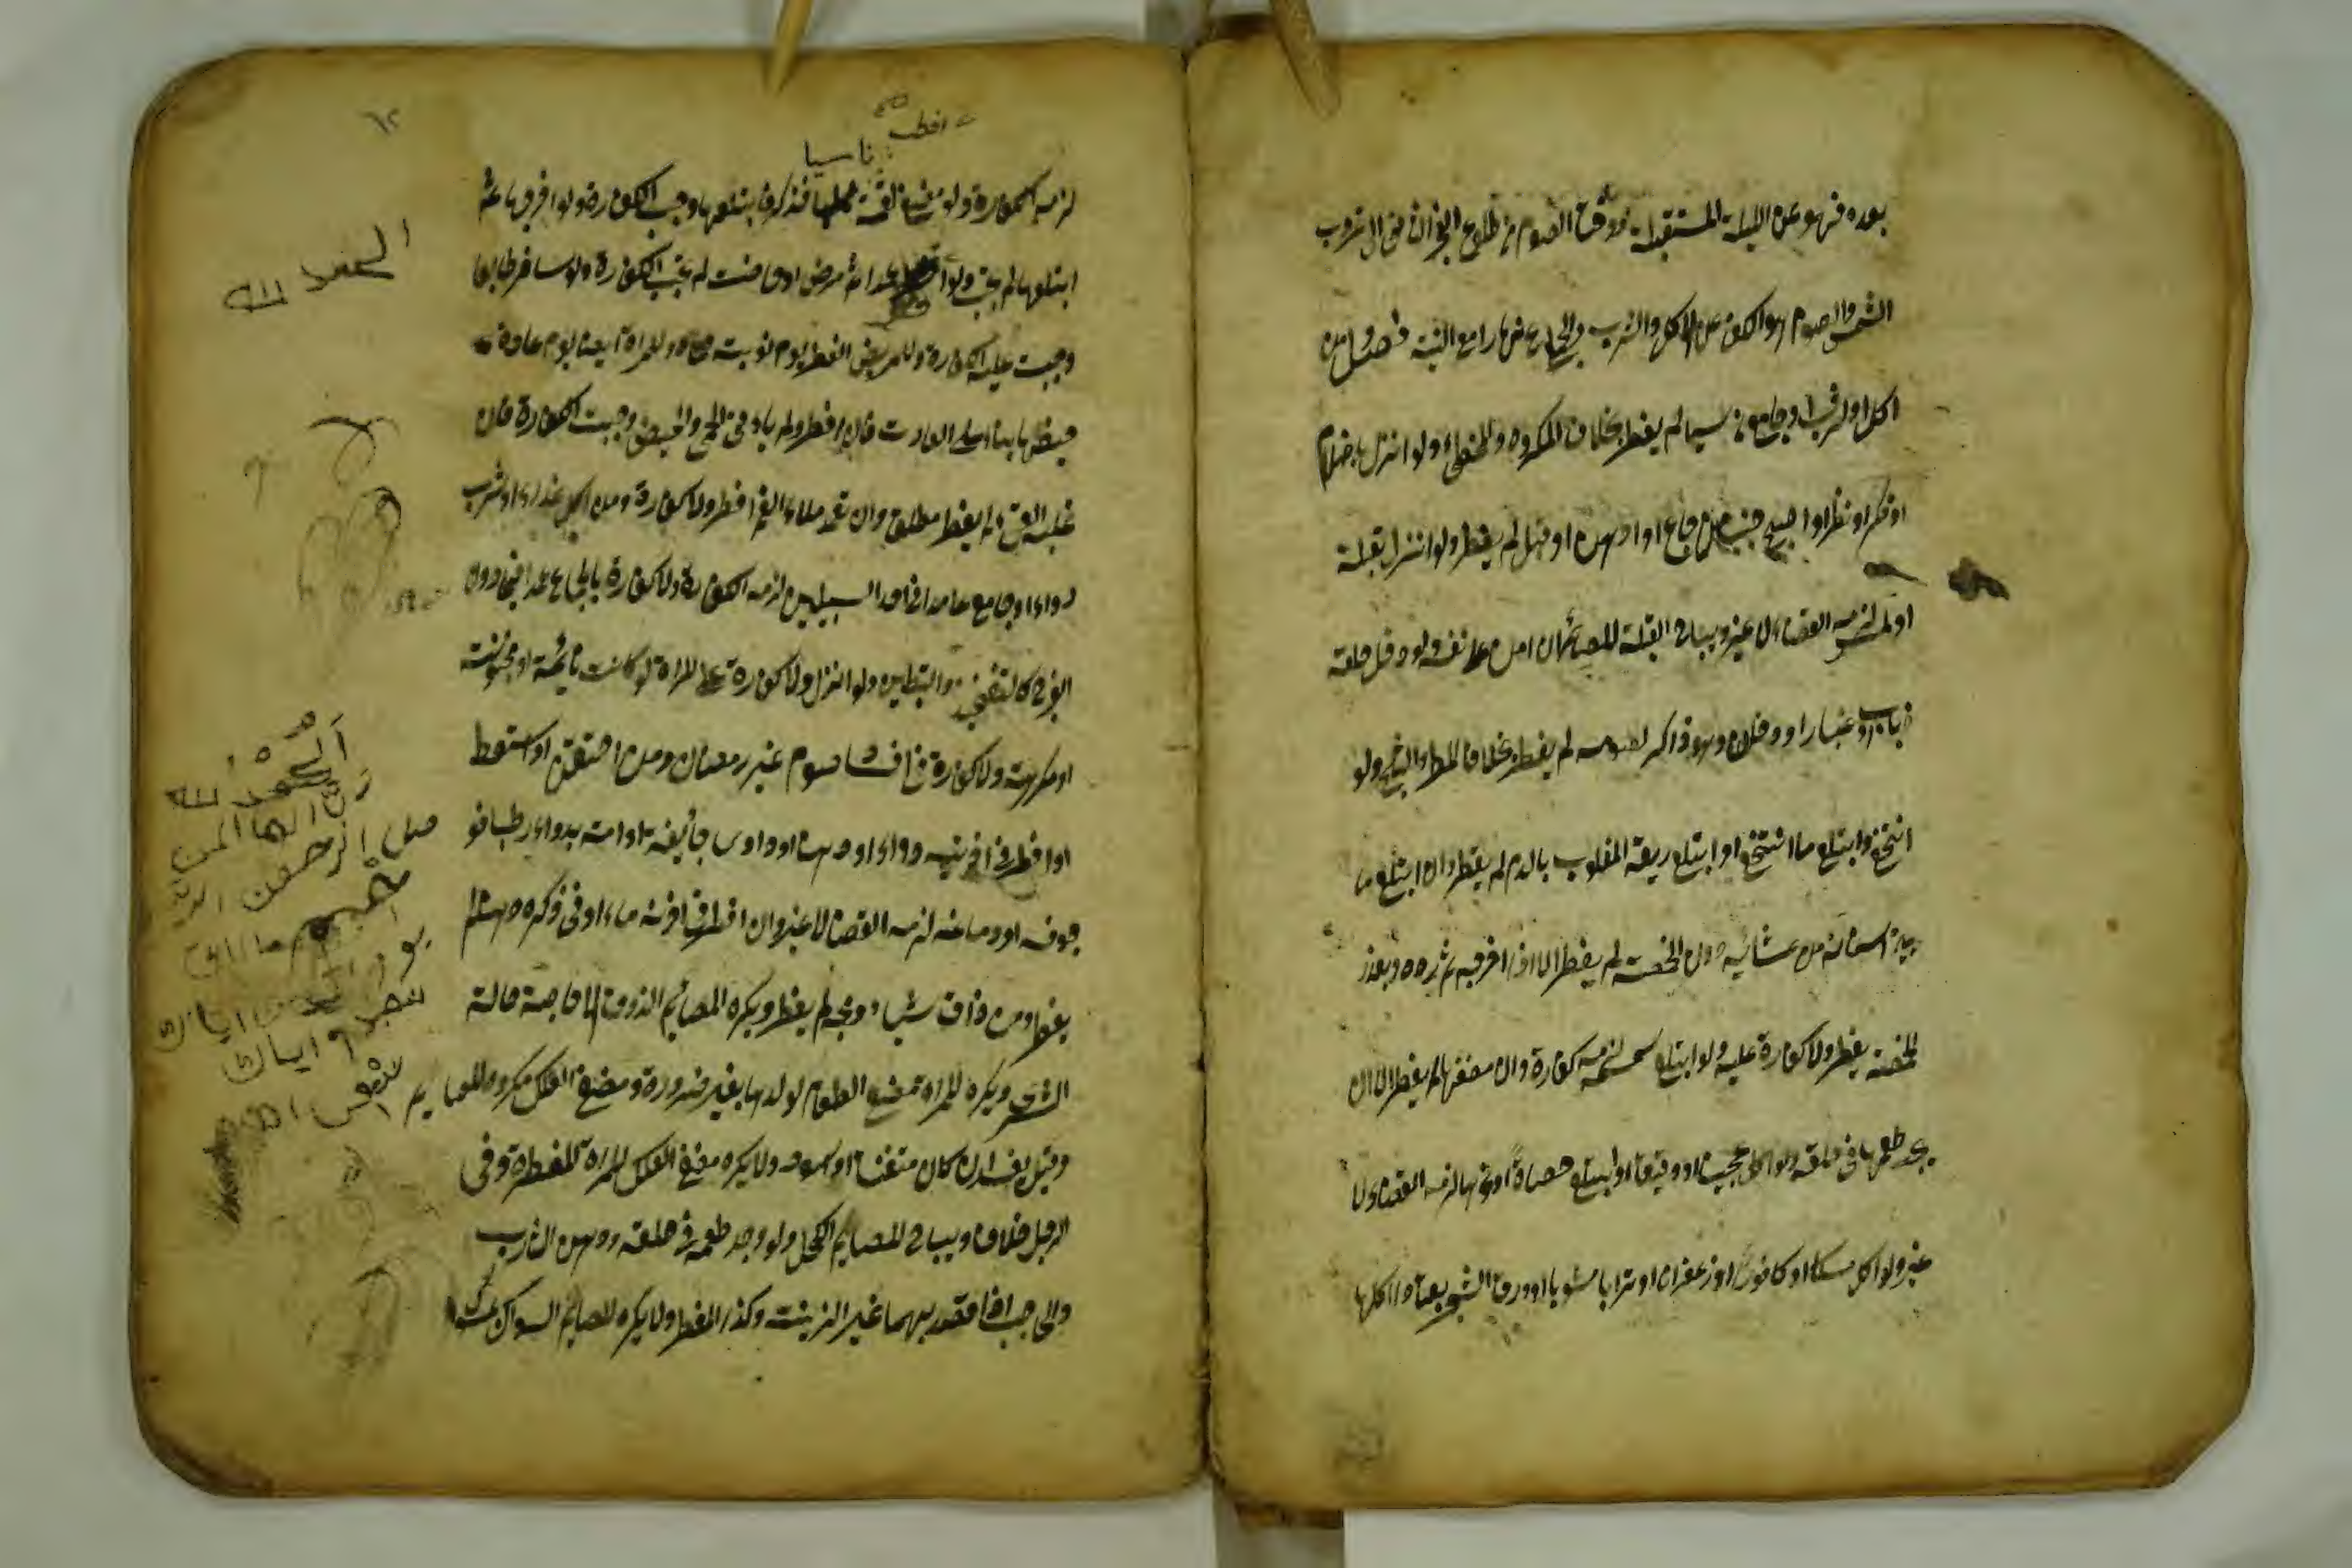 بعده فهو عن الليلة المستقبلة ووقت الصوم من طلوع الفجر الثاني الى غروب
الشمس والصوم هو الكف عن الاكل والشرب والجماع نهارا مع النية فصل من
اكل او شرب او جامع ناسيا لم يفطر بخلاف المكروه والمخطى ولو انزل باحتلام
او فكر او نظر او اصبح جنبا من جماع او ادهن او قبل لم يفطر ولو انزل بقبلة
او لمس لزمه القضاء لا غير ويباح القبلة للصائم ان امن على نفسه ولو دخل حلقه
ذباب او غبار او دخان وهو ذاكر لصومه لم يفطر بخلاف المطر والثلج ولو
انتخع وابتلع ما انتخع او ابتلع ريقه المغلوب بالدم لم يفطر وان ابتلع ما
بين اسنانه من عشائه دون الحمصة لم يفطر الا اذا اخرجه ثم رده وبقدر
الحمصة يفطر ولا كفارة عليه ولو ابتلع سمسمة لزمه كفارة وان مضغها لم يفطر الا ان
يجد طعمها فى حلقه ولو اكل عجينا او دقيقا او ابتلع حصاة او نواة لزمه القضاء لا
غير ولو اكل مسكا او كافورا او زعفران او ترابا مشويا او ورق الشجر يعتاد اكلها
افطر
ناسيا
لزمه الكفارة ولو مضغ لقمة فذكر فابتلعها وجب الكفارة ولو اخرجها ثم
ابتلعها لم يجب ولو افطر عمدا ثم مرض او حاضت لم يجب الكفارة ولو سافر طايعا
وجبت عليه الكفارة وللمريض الفطر يوم نوبته وللمراة ايضا يوم عادة
حيضها بناء على العادت فان افطر ولم يات الحمى والحيض وجبت الكفارة فان
غلبه القئ لم يفطر مطلقا وان تعمد ملاء الفم افطر ولا كفارة ومن اكل غذاء او شرب
دواء او جامع عامدا فى احد السبيلين لزمه الكفارة ولا كفارة بالجماع عمدا فيما دون
الفرج كالتفخيذ والتبطين ولو انزل ولا كفارة على المراة لو كانت نائمة او مجنونة
او مكرهة ولا كفارة فى افساد صوم غير رمضان ومن احتقن او استعط
او اقطر فى اذنيه دواء او دهنا او داوى جائفة او امة بدواء رطب فو
جوفه او دماغه لزمه القضا لا غير وان اقطر فى اذنه ماء او فى ذكره دهنا لم
يفطر ومن ذاق شيا ومجه لم يفطر ويكره للصايم الذوق الا حاجة حالة
الشرى ويكره للمراة مضغ الطعام لولدها بغير ضرورة ومضغ العلك مكروه للصايم
وقيل يفسد ان كان متفتتا او اسود ولا يكره مضغ العلك للمراة المفطرة وفى
الرجل خلاف ويباح للصايم الكحل ولو وجد طعمه فى حلقه ودهن الشارب
والحاجب اذا قصد بهما غير الزينة وكذا المفطر ولا يكره للصايم السواك
الحمد لله
الحمد لله
رب العالمين
الرحمن
مالك
يوم الدين اياك
نعبد و اياك